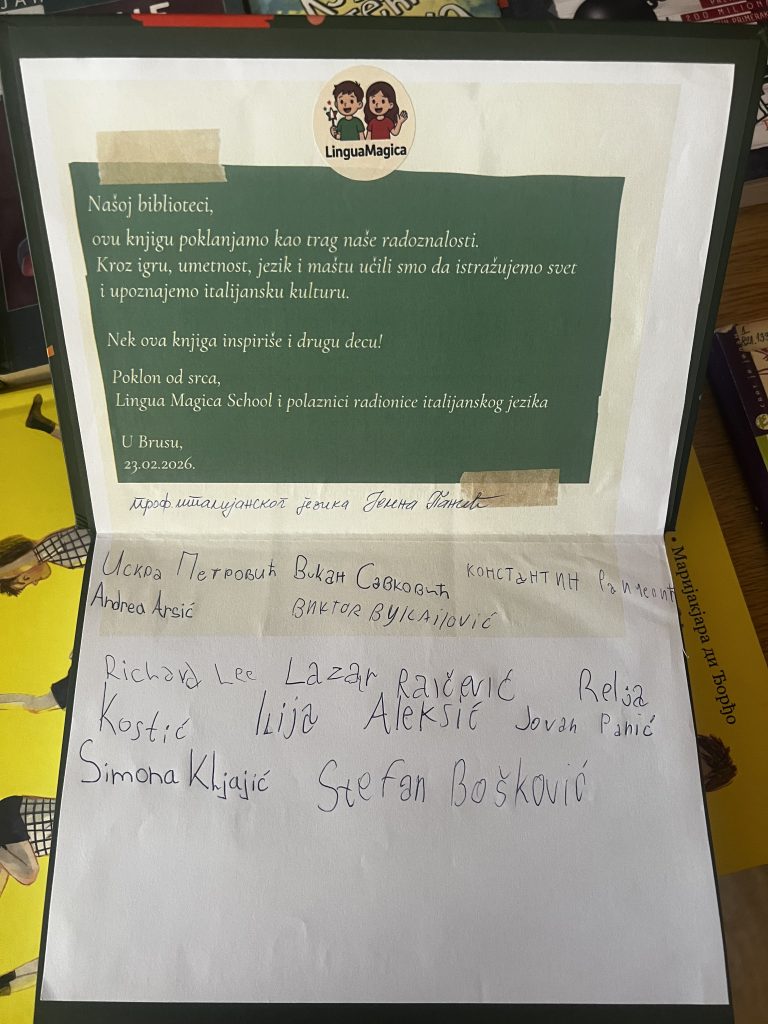 LinguaMagica
Našoj biblioteci,
ovu knjigu poklanjamo kao trag naše radoznalosti.
Kroz igru, umetnost, jezik i maštu učili smo da istražujemo svet
i upoznajemo italijansku kulturu.
Nek ova knjiga inspiriše i drugu decu!
Poklon od srca,
Lingua Magica School i polaznici radionice italijanskog jezika
U Brusu,
23.02.2026.
проф. италијанског језика Јелена Панић
Искра Петровић Викан Савковић КОНСТАНТИН
Andrea Arsić ВИКТОR
Richard Lee Lazar Raičević Relja
Kostić Ilija Aleksić Jovan Panić
Simona Kljajić Stefan Bošković
• Маријакјара ди Ђорђо